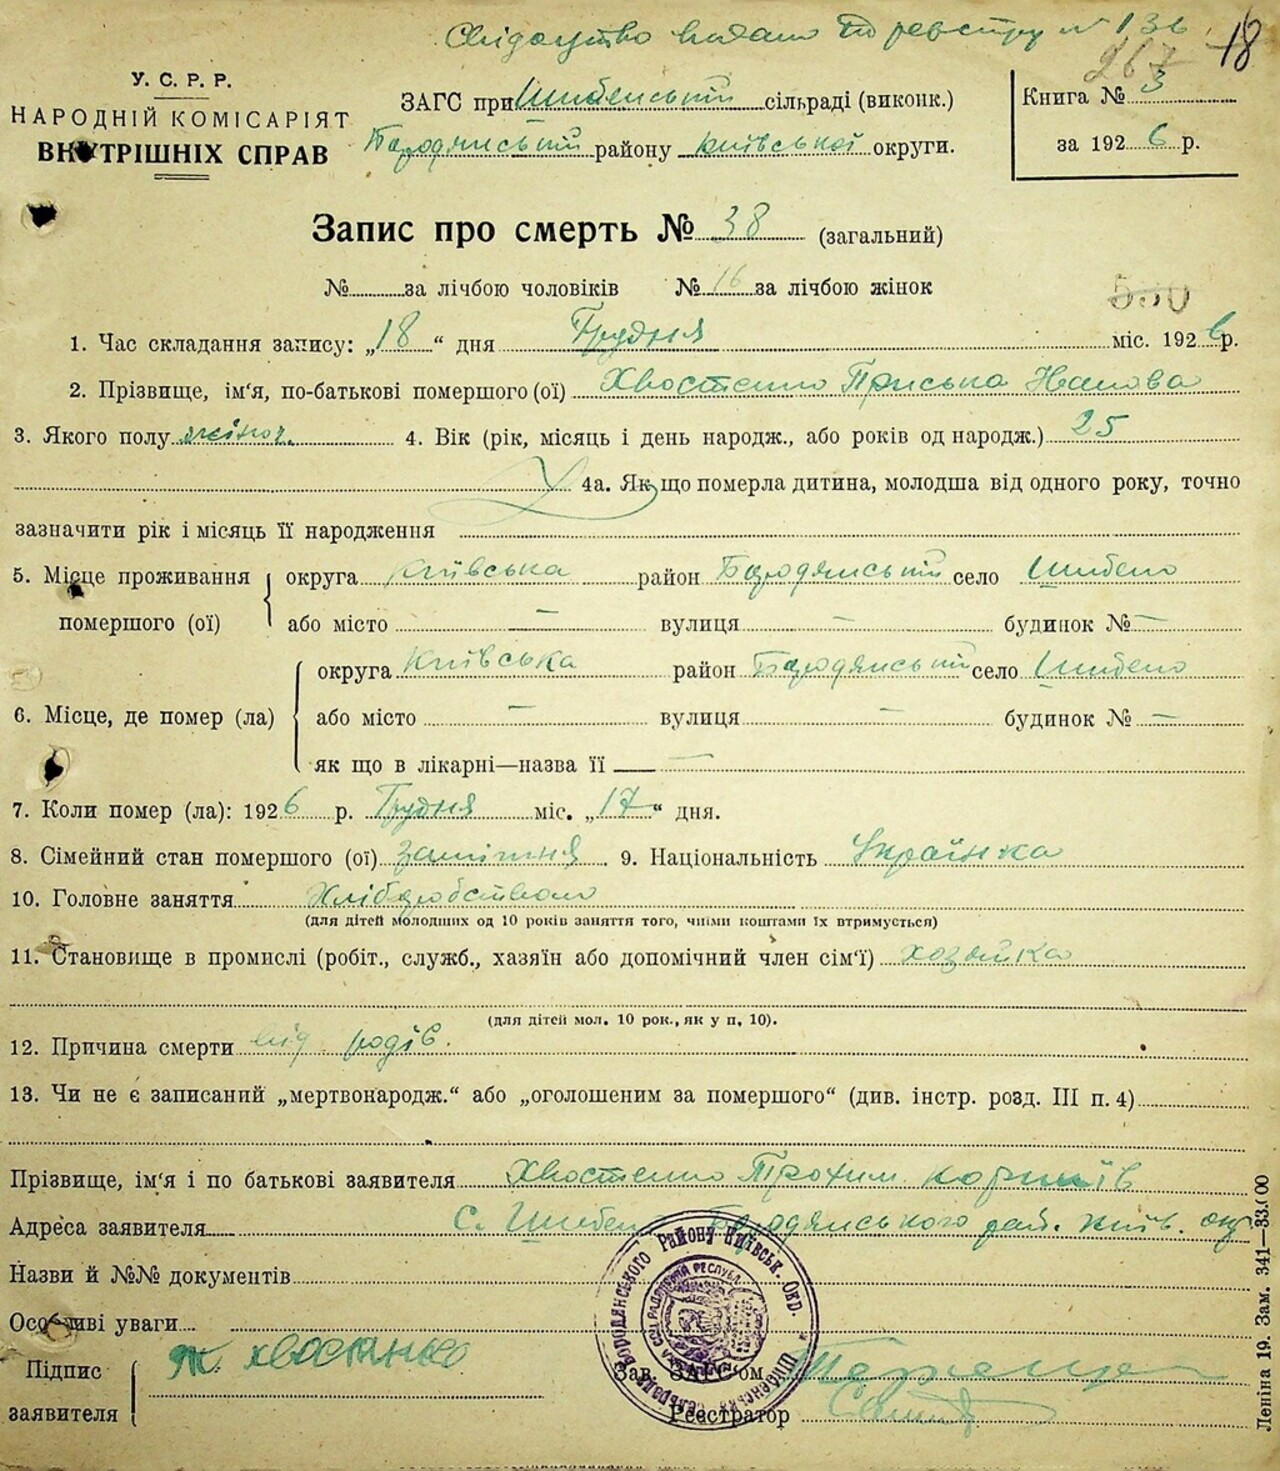 Свідоцтво видано по реєстру № 136
18
267
У. С. Р. Р.
НАРОДНІЙ КОМІСАРІЯТ
ВНУТРІШНІХ СПРАВ
ЗАГС при Шибенській сільраді (виконк.)
Бородянський району Київської округи.
Книга № 3
за 1926 р.
Запис про смерть № 38 (загальний)
№ за лічбою чоловіків № 16 за лічбою жінок
550
1. Час складання запису: „18“ дня Грудня міс. 1926 р.
2. Прізвище, ім'я, по-батькові помершого (ої) Хвостенко Приська Іванова
3. Якого полу жіноч. 4. Вік (рік, місяць і день народж., або років од народж.) 25
4а. Як що померла дитина, молодша від одного року, точно
зазначити рік і місяць її народження
5. Місце проживання помершого (ої) округа Київська район Бородянський село Шибено
або місто — вулиця — будинок № —
6. Місце, де помер (ла) округа Київська район Бородянський село Шибено
або місто — вулиця — будинок № —
як що в лікарні—назва її —
7. Коли помер (ла): 1926 р. Грудня міс. „17“ дня.
8. Сімейний стан помершого (ої) замужня 9. Національність Українка
10. Головне заняття Хліборобством
(для дітей молодших од 10 років заняття того, чиїми коштами їх втримується)
11. Становище в промислі (робіт., служб., хазяїн або допомічний член сім'ї) хозяйка
(для дітей мол. 10 рок., як у п. 10).
12. Причина смерти від родів.
13. Чи не є записаний „мертвонародж.“ або „оголошеним за помершого“ (див. інстр. розд. III п. 4)
Прізвище, ім'я і по батькові заявителя Хвостенко Трохим Корніїв
Адреса заявителя С. Шибено Бородянського рай. Київ. окр.
Назви й №№ документів
Особливі уваги
Підпис заявителя Хвостенко
Зав. ЗАГС'ом
Реєстратор
Бородянського Району Київськ. Окр.
Шибенська Сільрада
Леніна 19. Зам. 341—33.000